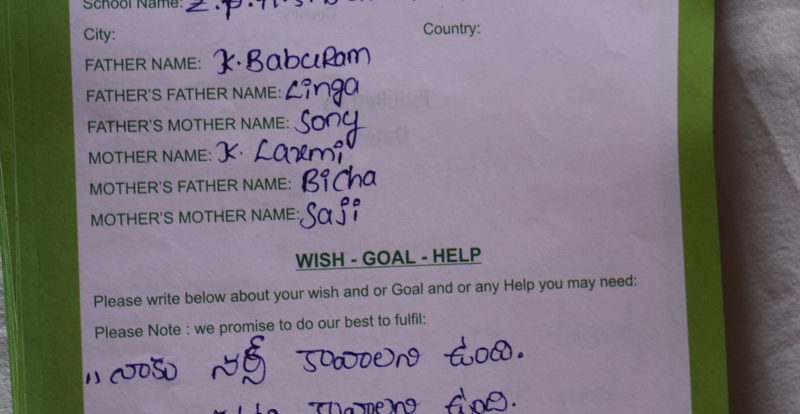 School Name: Z.P.H.S.
City: Country:
FATHER NAME: K. BabuRam
FATHER'S FATHER NAME: Linga
FATHER'S MOTHER NAME: Sony
MOTHER NAME: K. Laxmi
MOTHER'S FATHER NAME: Bicha
MOTHER'S MOTHER NAME: Saji
WISH - GOAL - HELP
Please write below about your wish and or Goal and or any Help you may need:
Please Note : we promise to do our best to fulfil:
"నాకు నర్సు కావాలని ఉంది.
కావాలని ఉంది.